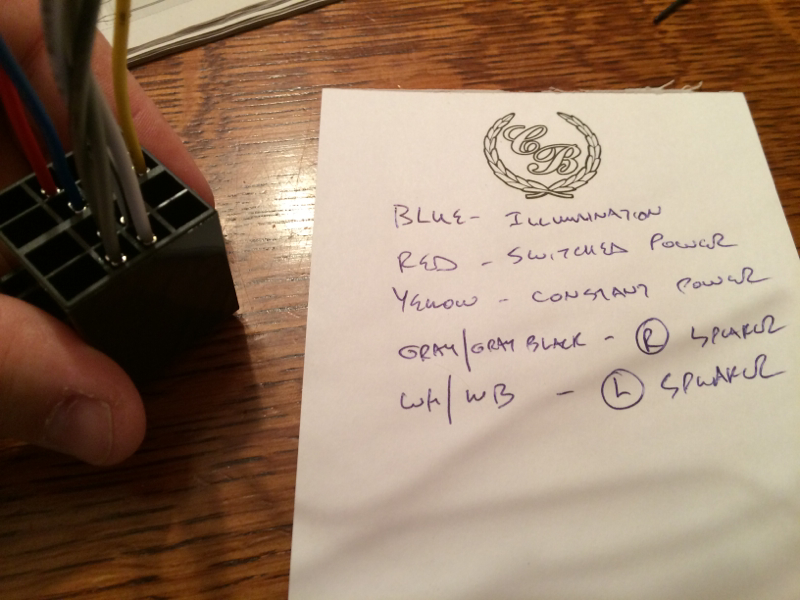 CB
BLUE- ILLUMINATION
RED - SWITCHED POWER
YELLOW - CONSTANT POWER
GRAY/GRAY BLACK - R SPEAKER
WH/WB - L SPEAKER